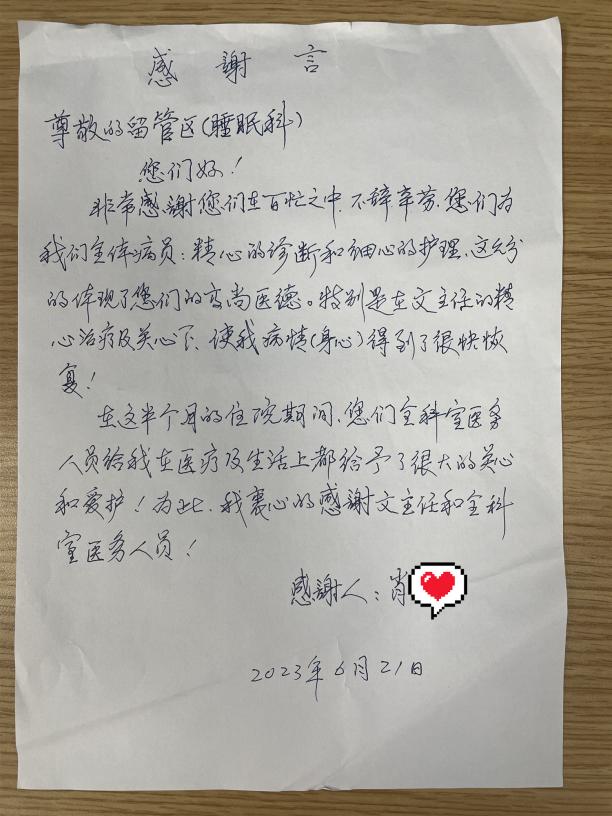 感謝言
尊敬的留管区(睡眠科)
您们好!
非常感謝您们在百忙之中.不辞辛劳.您们为
我们全体病员:精心的诊断和细心的护理、这充分
的体现了您们的高尚医德。特别是在文主任的精
心治疗及关心下、使我病情(身心)得到了很快恢
复!
在这半个月的住院期间、您们全科室医务
人员给我在医疗及生活上都给予了很大的关心
和爱护!为此、我裹心的感謝文主任和全科
室医务人员!
感謝人:肖
2023年6月21日